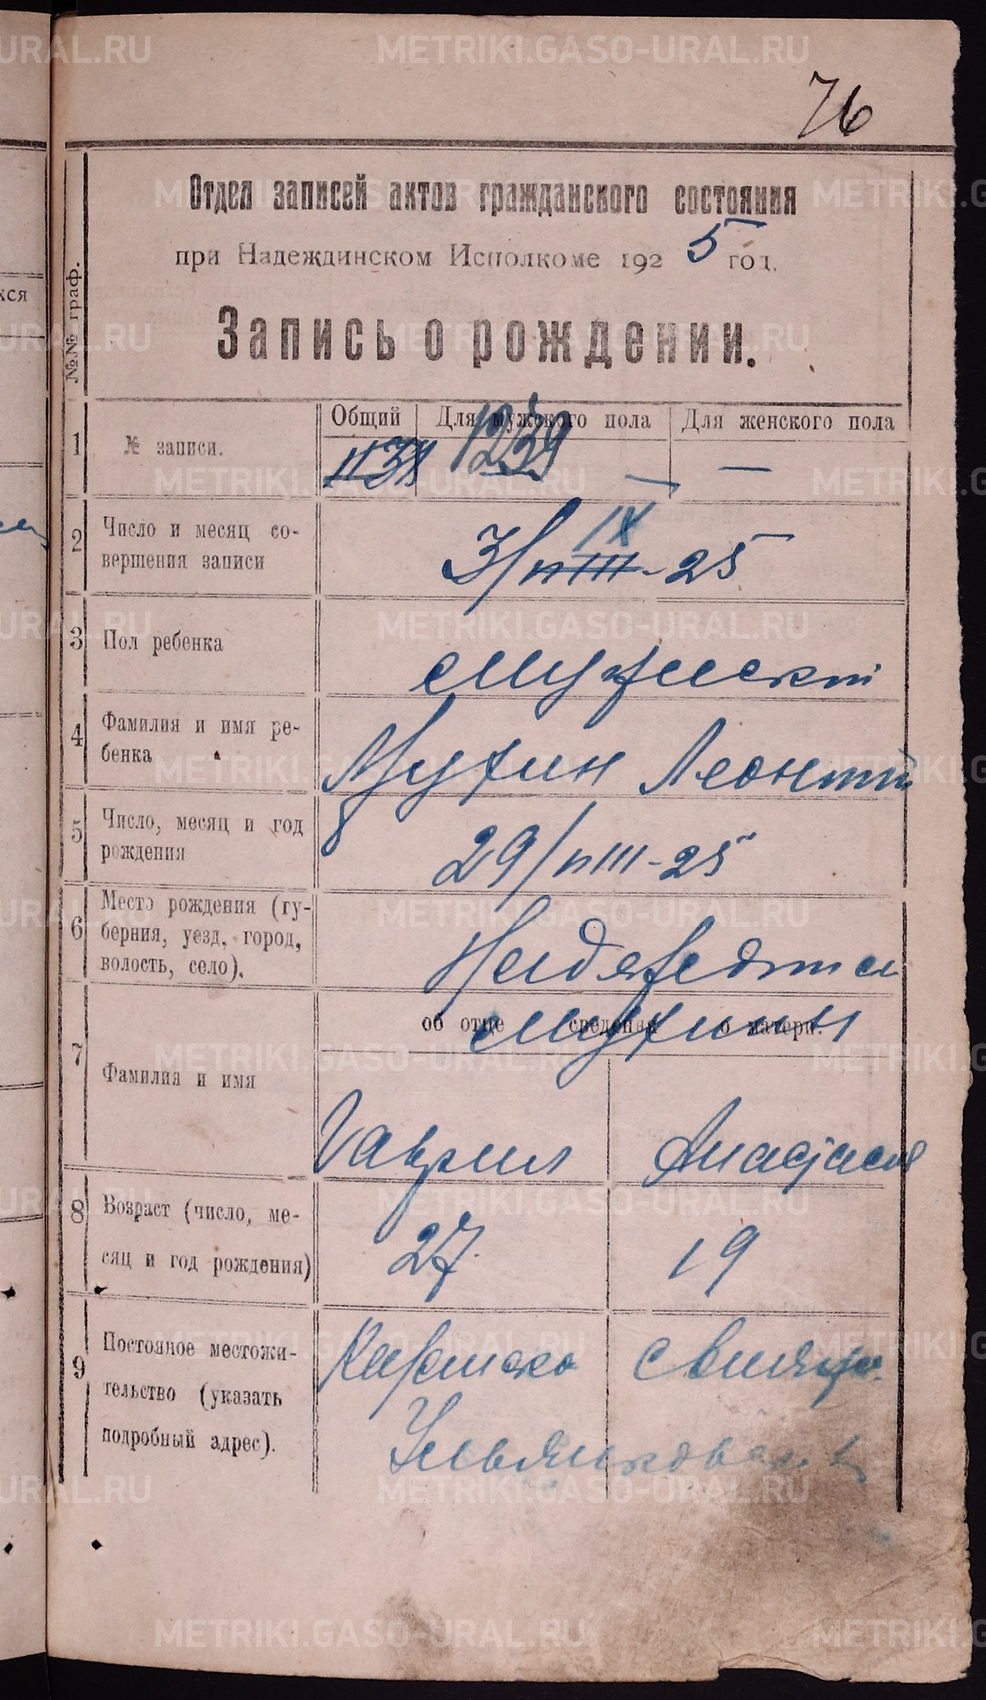 76
Отдел записей актов гражданского состояния
при Надеждинском Исполкоме 1925 год.
Запись о рождении.
№№ граф.
Общий Для мужского пола Для женского пола
1 № записи. 1239 — —
IX
2 Число и месяц со-
вершения записи
3/VIII-25
3 Пол ребенка
мужской
4 Фамилия и имя ре-
бенка
Мухин Леонтий
5 Число, месяц и год
рождения
29/VIII-25
6 Место рождения (гу-
берния, уезд, город,
волость, село).
об отце сведения о матери.
7 Фамилия и имя
Мухины
Гаврил Анастасия
8 Возраст (число, ме-
сяц и год рождения)
27 19
9 Постоянное местожи-
тельство (указать
подробный адрес).
METRIKI.GASO-URAL.RU